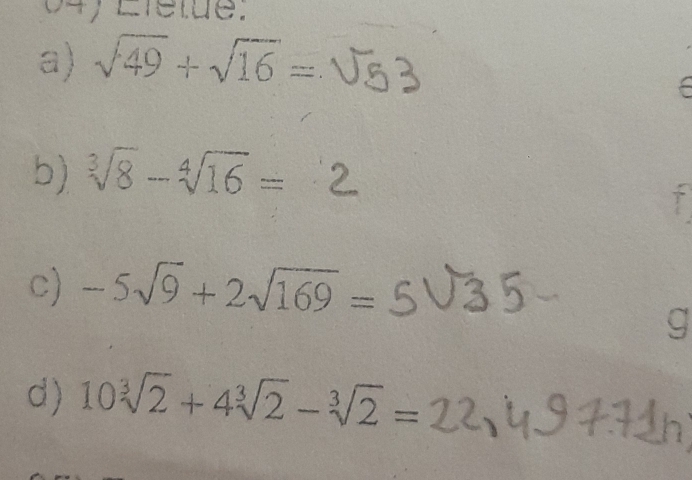 04) Efetue:
a) √49 + √16 = √53
b) ∛8 − ∜16 = 2
c) −5√9 + 2√169 = 5√35
d) 10∛2 + 4∛2 − ∛2 = 22,49771
f
g